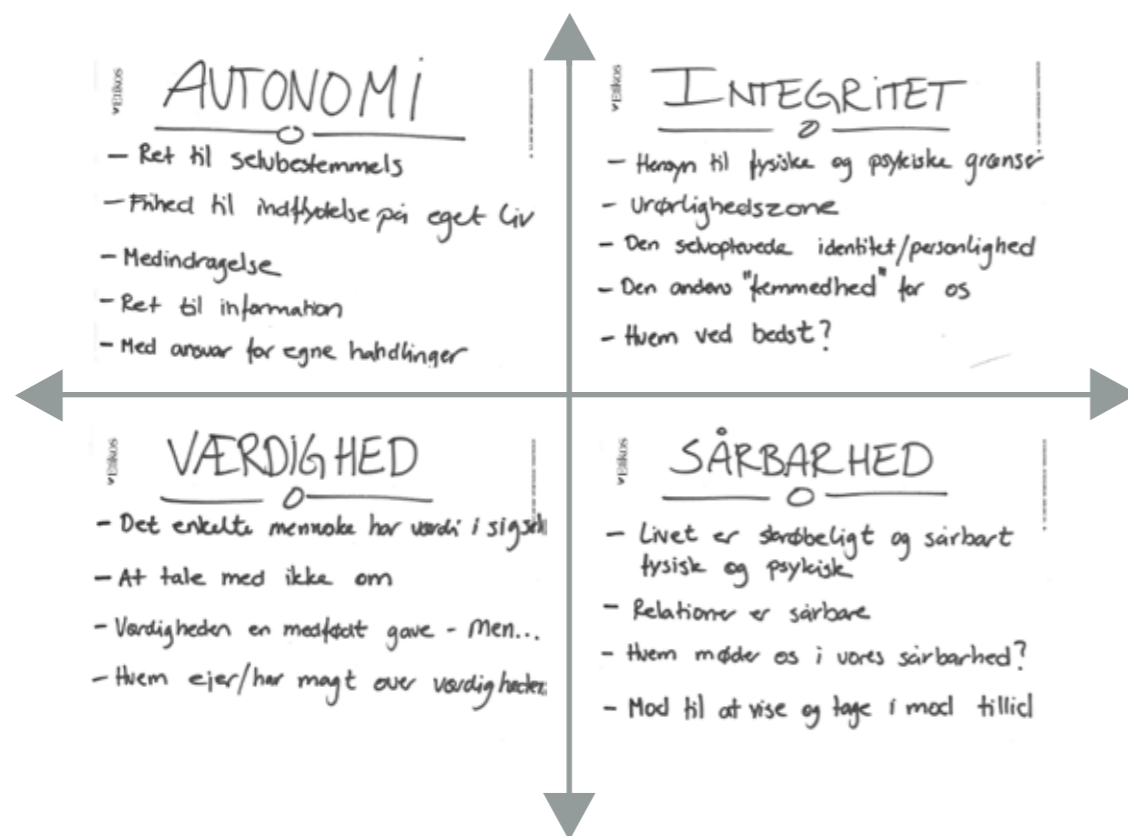 AUTONOMI
- Ret til selvbestemmels
- Frihed til indflydelse på eget liv
- Medindragelse
- Ret til information
- Med ansvar for egne handlinger
INTEGRITET
- Hensyn til fysiske og psykiske grænser
- Urørlighedszone
- Den selvoplevede identitet/personlighed
- Den andens "fremmedhed" for os
- Hvem ved bedst?
VÆRDIGHED
- Det enkelte menneske har værdi i sig selv
- At tale med ikke om
- Værdigheden en medfødt gave - Men...
- Hvem ejer/har magt over værdigheden
SÅRBARHED
- Livet er skrøbeligt og sårbart
fysisk og psykisk
- Relationer er sårbare
- Hvem møder os i vores sårbarhed?
- Mod til at vise og tage i mod tillid